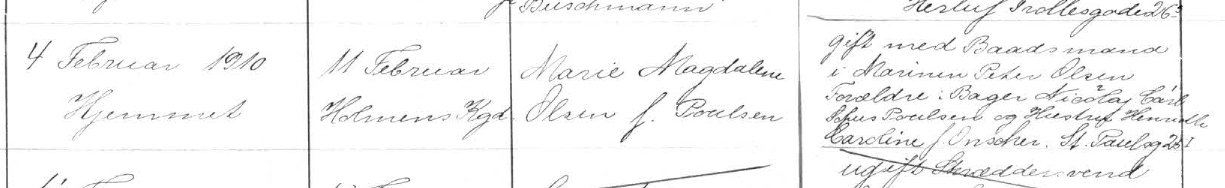 Buschmann
Herluf Trollesgade 26³
4 Februar 1910
Hjemmet
11 Februar
Holmens Kgd.
Marie Magdalene
Olsen f. Poulsen
gift med Baadsmand
i Marinen Peter Olsen
Forældre: Bager Nicolaj Carl
Poulsen og Hustru Henriette
Caroline f St. Paulsg 25 I
ugift Skræddersvend